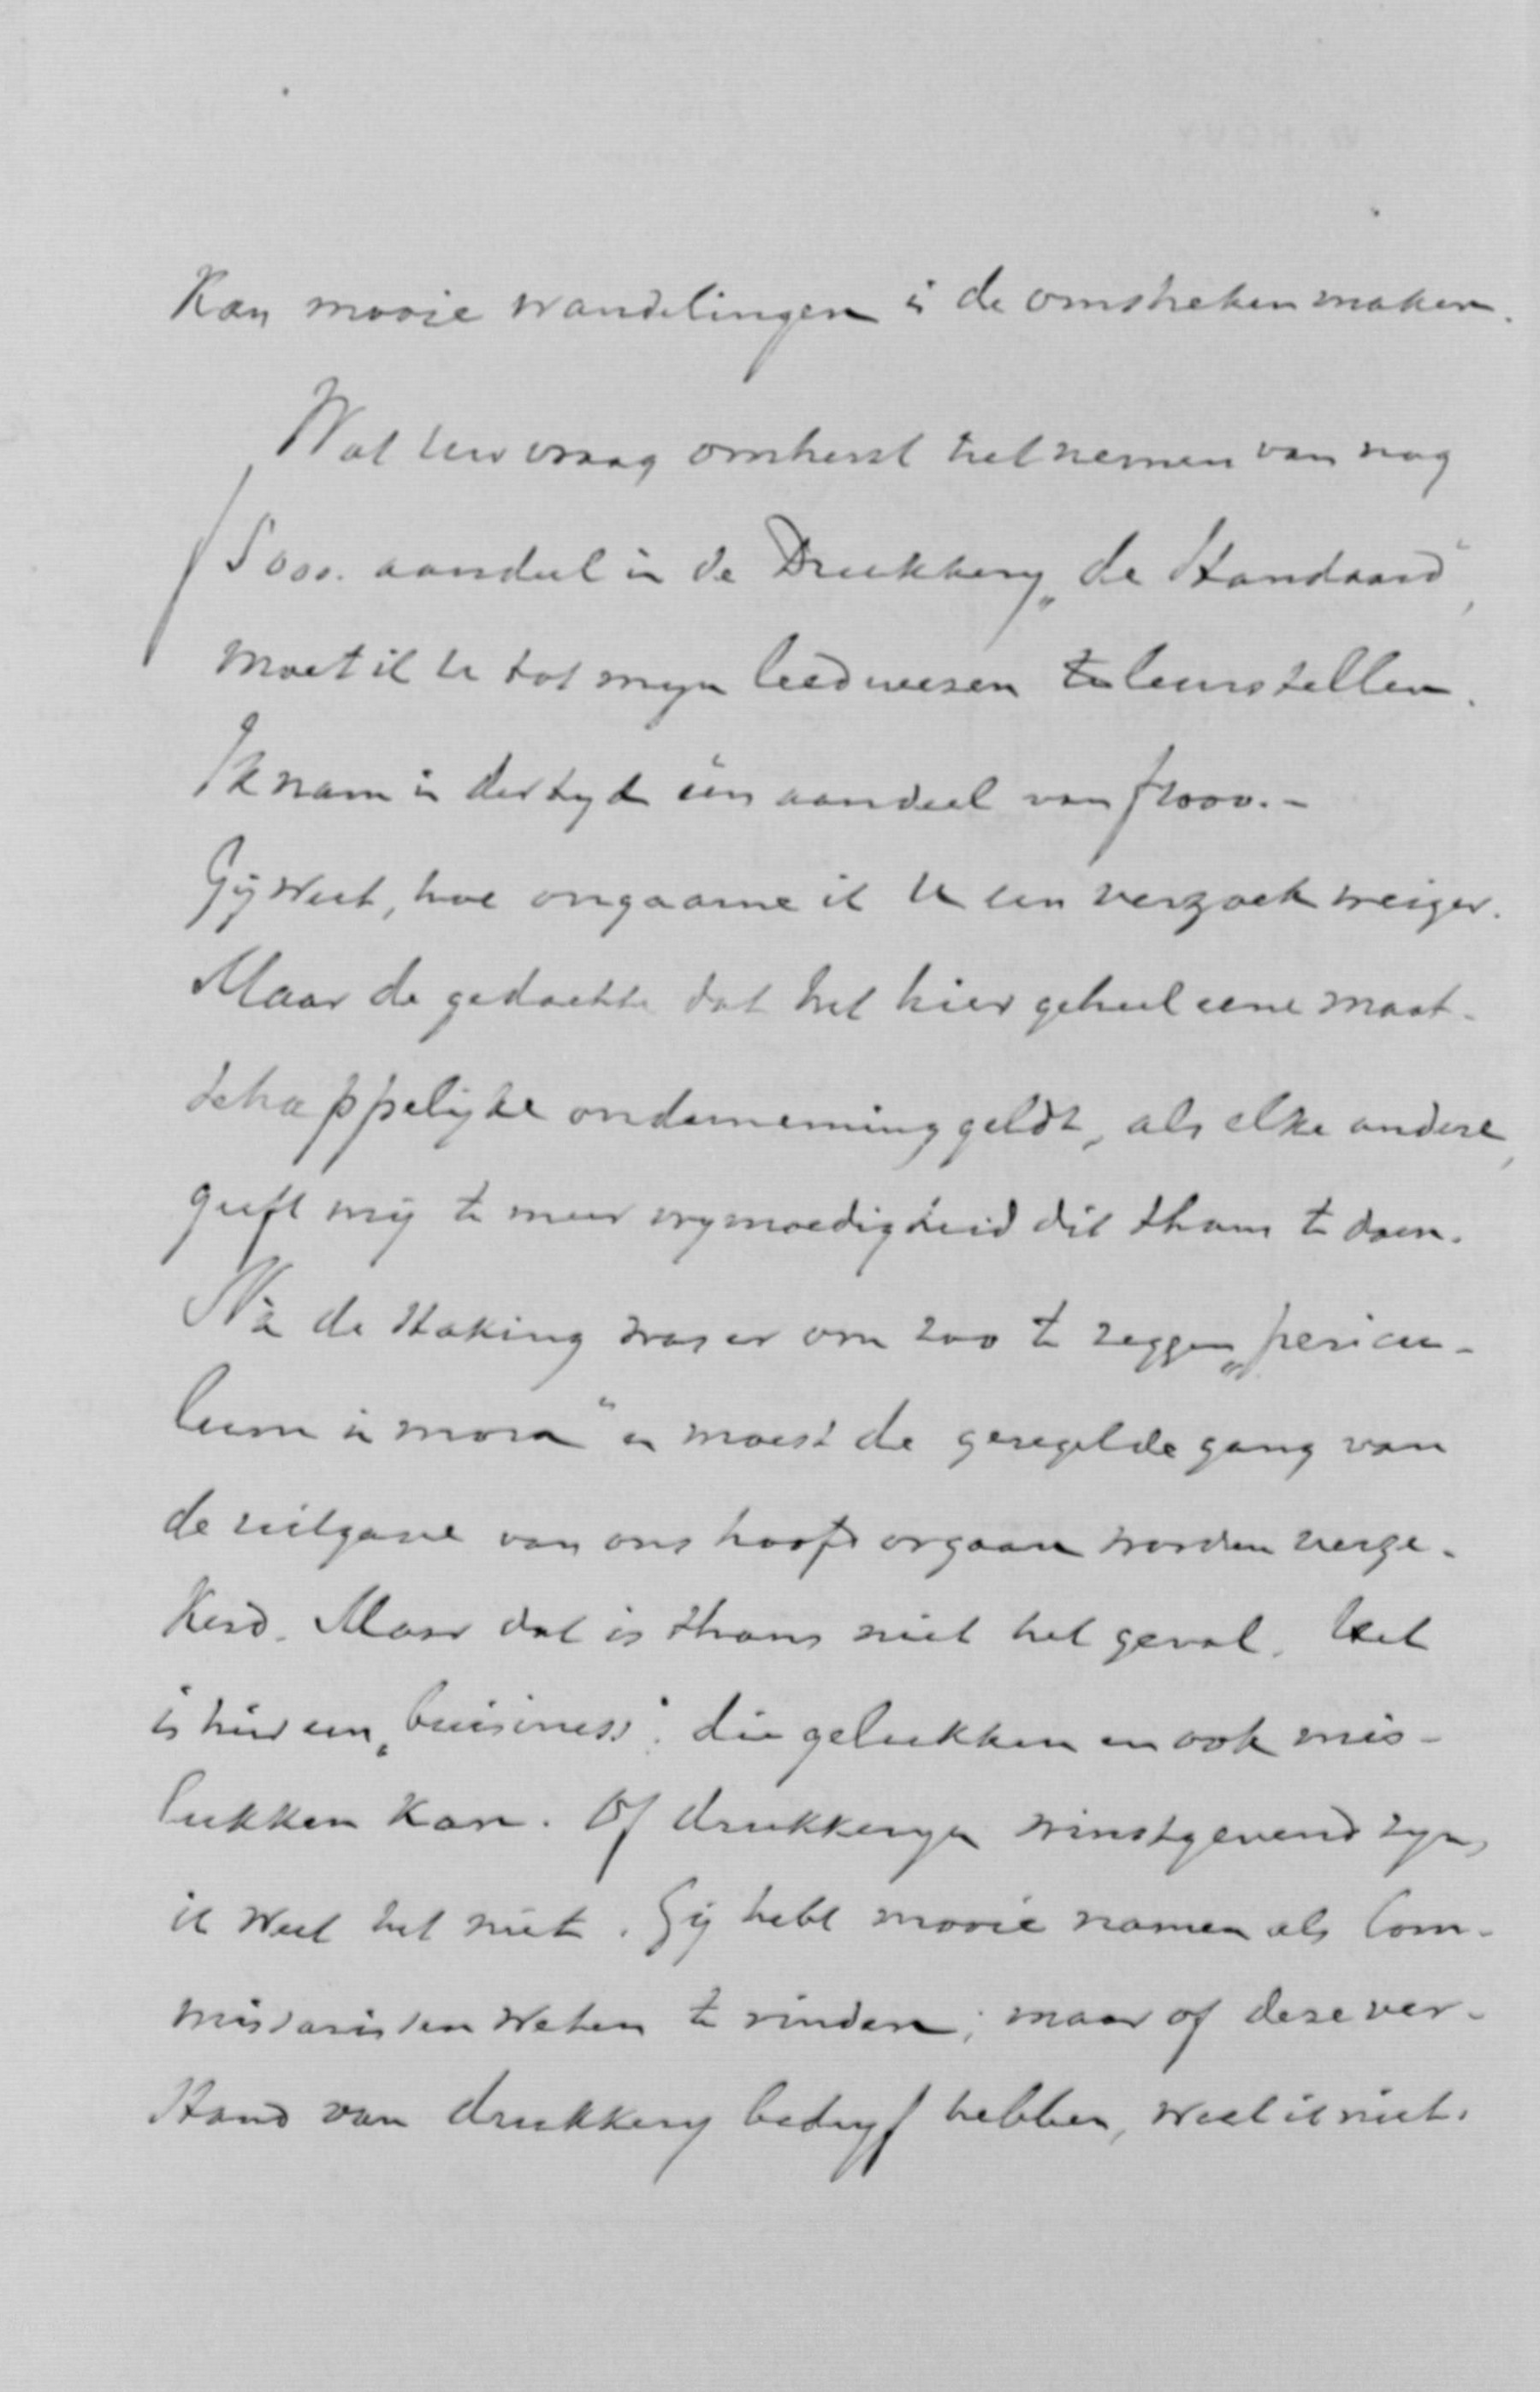 Kan mooie wandelingen in de omstreken maken.
Wat uw vraag omtrent het nemen van nog
f 5000. aandeel in de Drukkery „de Standaard",
moet ik U tot myn leedwezen te leurstellen.
Ik nam in der tyd één aandeel van f 2000.-
Gij weet, hoe ongaarne ik U een verzoek weiger.
Maar de gedachte dat het hier geheel eene maat-
schappelijke onderneming geldt, als elke andere,
geeft mij te meer vrymoedigheid dit thans te doen.
Nà de staking was er om zoo te zeggen „pericu-
lum in mora" en moest de geregelde gang van
de uitgave van ons hoofdorgaan worden verze-
kerd. Maar dat is thans niet het geval. Het
is hier een „buisiness", die gelukken en ook mis-
lukken kan. Of drukkeryen winstgevend zyn,
ik weet het niet. Gij hebt mooie namen als Com-
missarissen weten te vinden; maar of deze ver-
stand van drukkery bedryf hebben, weet ik niet.